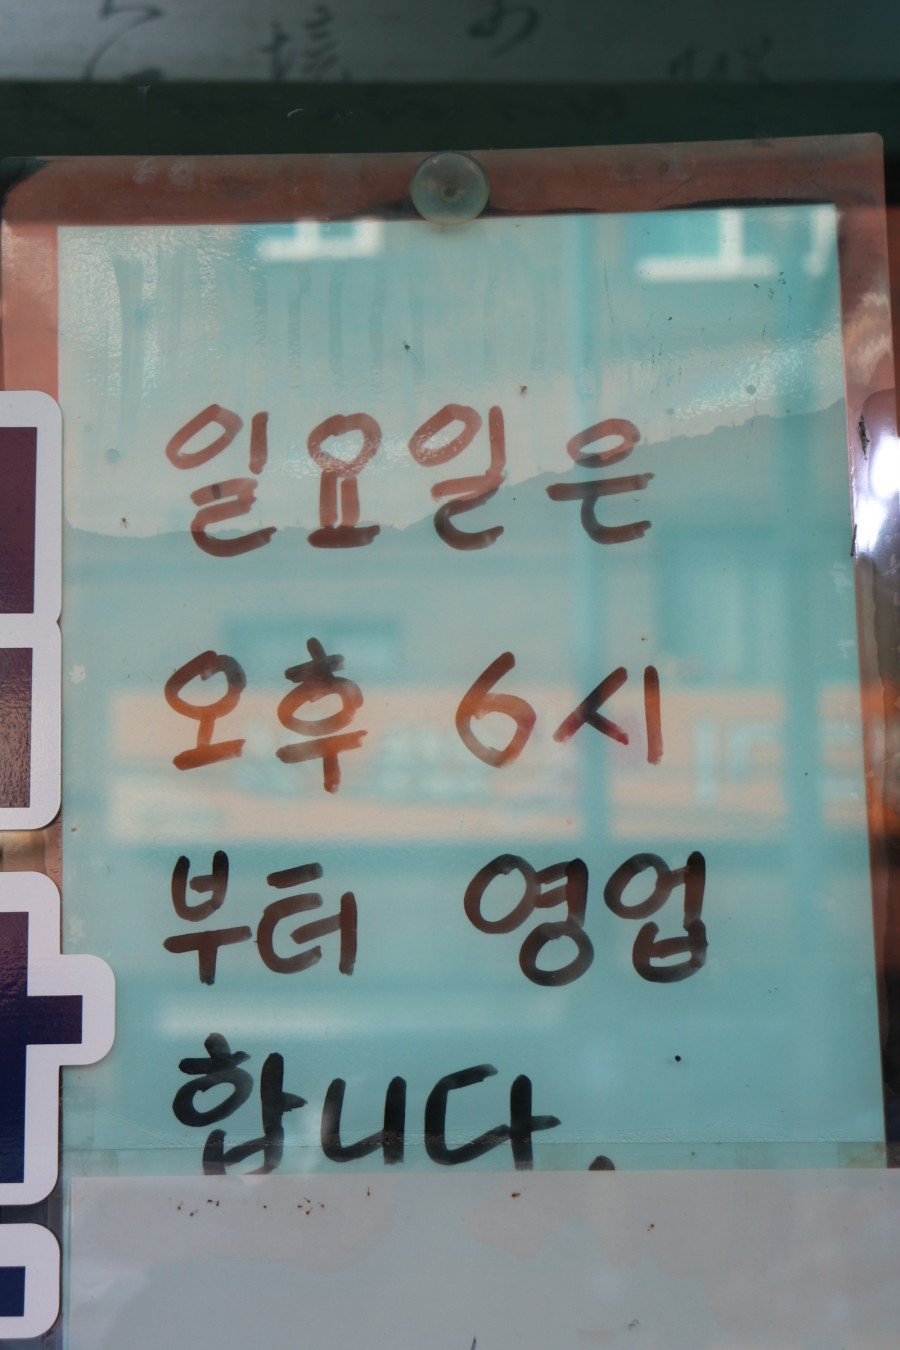 일요일은
오후 6시
부터 영업
합니다.